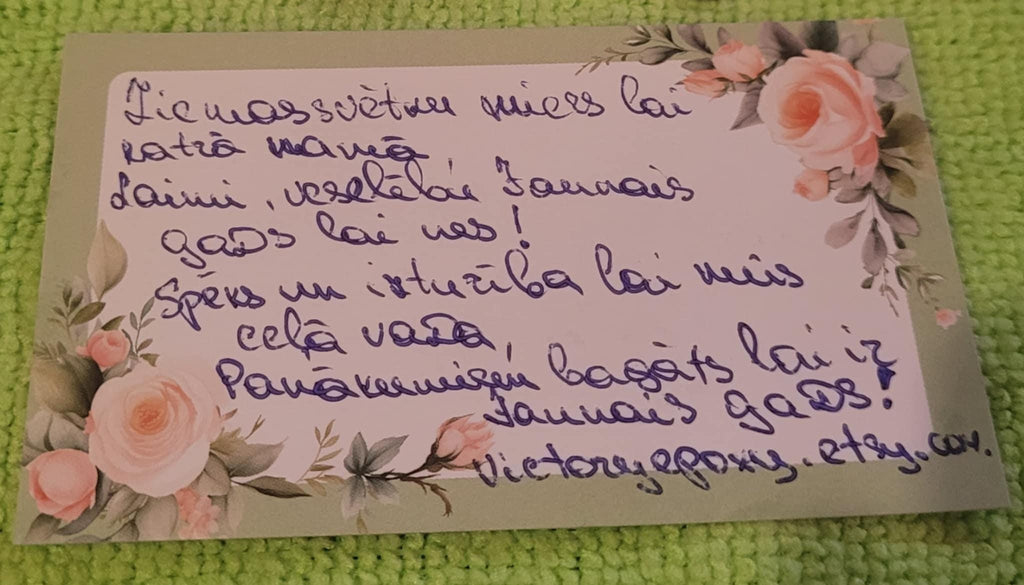 Ziemassvētku miers lai
katrā namā,
Laimi, veselību Jaunais
gads lai nes!
Spēks un izturība lai mūs
ceļā vada,
Panākumiem bagāts lai ir
Jaunais gads!
victoryepoxy.etsy.com.